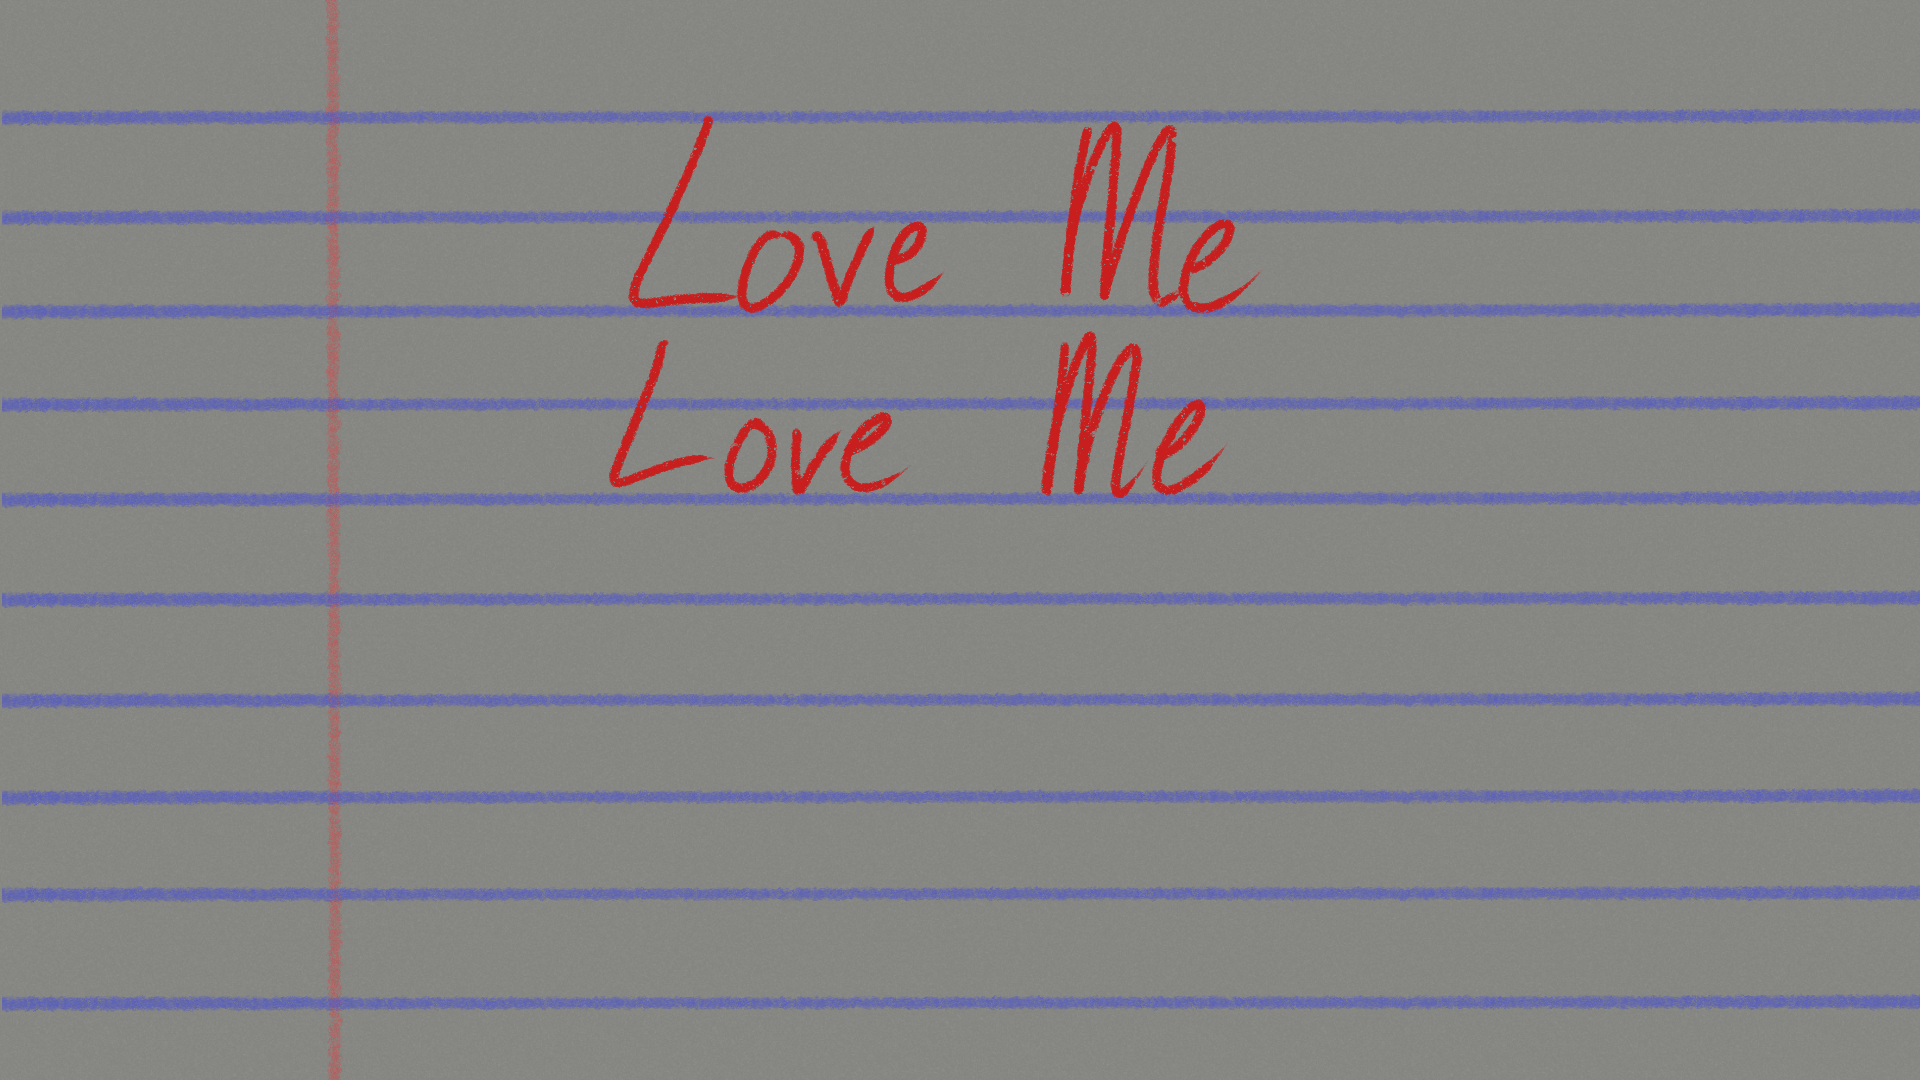 Love Me
Love Me